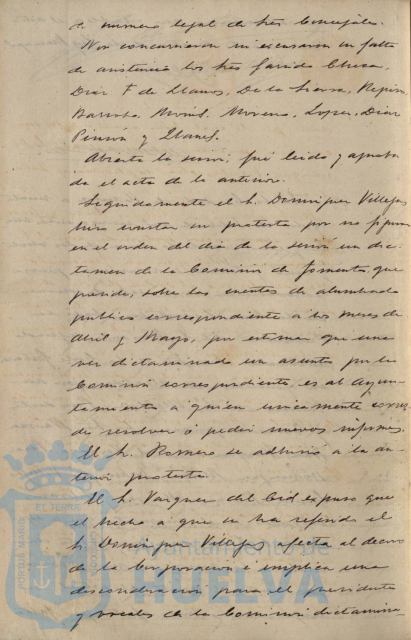 de número legal de tres Concejales.
Non concurrieron ni escusaron su falta
de asistencia los tres Garrido Chiesa,
Díaz F. de Llanos, De la Sierra, Repiso
Barreda, Moreno, Lopez, Díaz
Pinzón y Llanes.
Abierta la sesion, fué leida y aproba
da el acta de la anterior.
Seguidamente el Sr. Dominguez Villegas
hizo constar su protesta por no figurar
en el orden del dia de la sesion un dic-
tamen de la Comision de fomento, que
preside, sobre las cuentas de alumbrado
publico correspondiente a los meses de
Abril y Mayo, por estimar que una
vez dictaminado un asunto por la
Comision correspondiente, es al Ayun-
tamiento a quien unicamente corres
de resolver ó pedir nuevos informes.
El Sr. Romero se adhirió a la an-
terior protesta.
El Sr. Vazquez del Cid expuso que
el hecho a que se ha referido el
Sr. Dominguez Villegas afecta al decoro
de la Corporacion é implica una
desconsideracion para el presidente
y vocales de la Comision dictamina
PORTUS MARIS
ET TERRAE
CUSTODIA
Ayuntamiento de
HUELVA